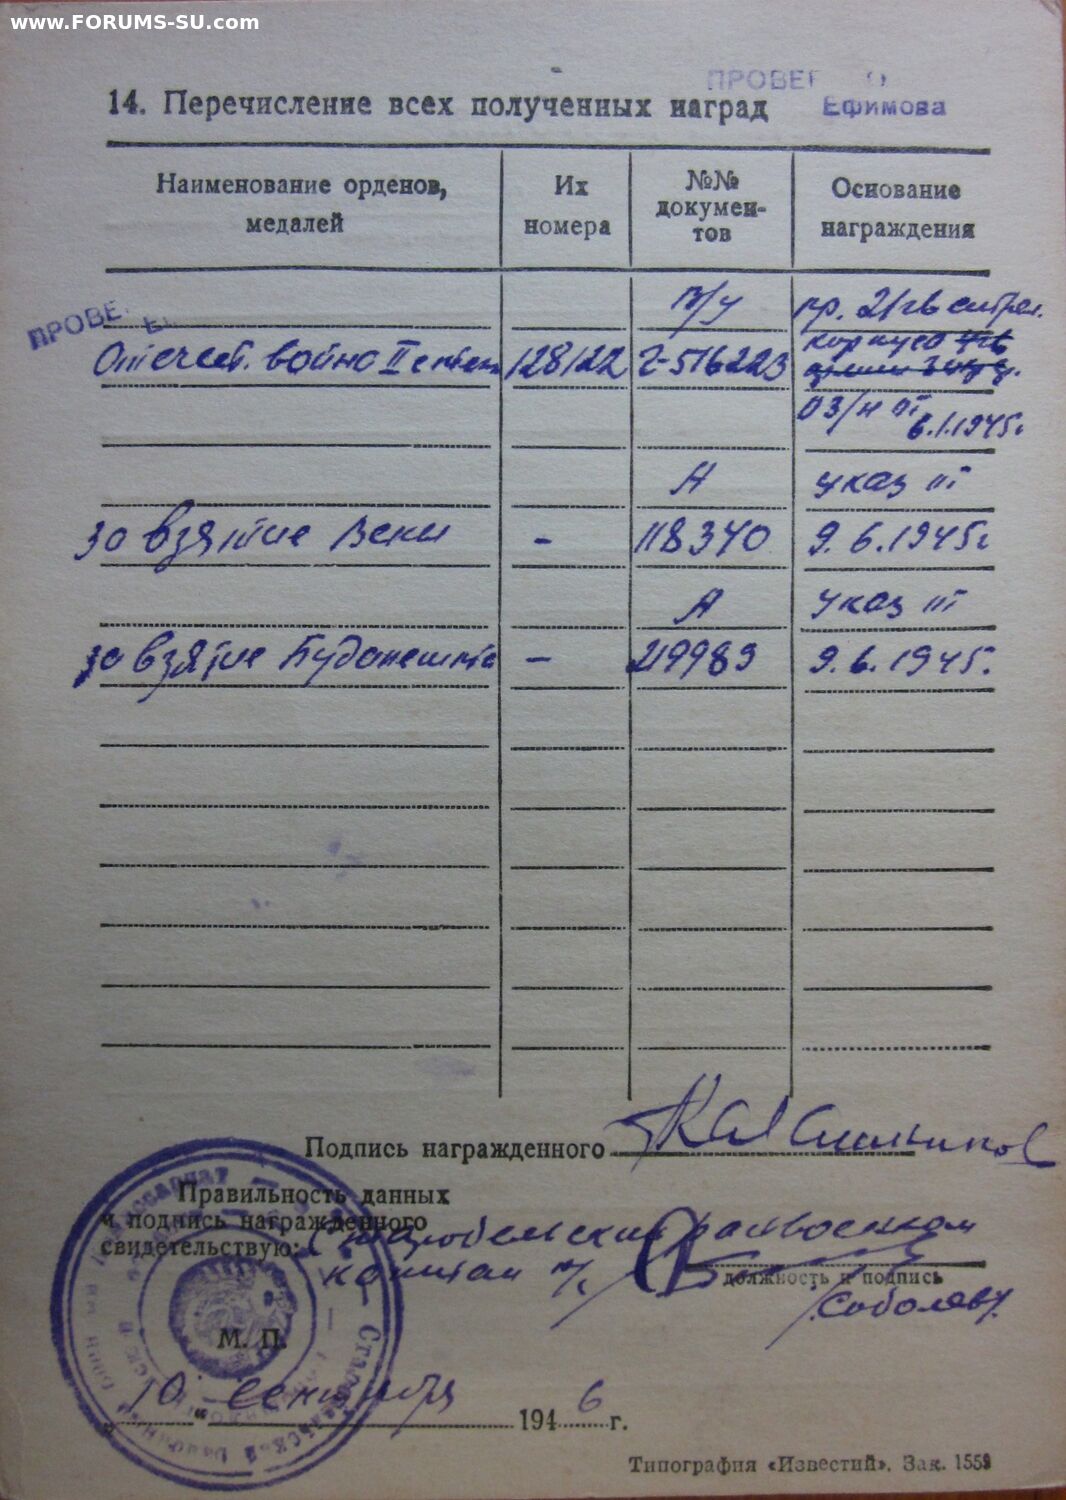 www.FORUMS-SU.com
ПРОВЕ
14. Перечисление всех полученных наград
Ефимова
Наименование орденов, медалей
Их номера
№№ докумен-тов
Основание награждения
ПРОВЕ
в/у
пр. 21 гв стрел.
Отечест. война II степ
128122
Г-516223
корпуса
03/н от
6.1.1945г
А
указ от
За взятие Вены
-
118340
9.6.1945г
А
указ от
За взятие Будапешта
-
219989
9.6.1945г.
Подпись награжденного
Правильность данных
и подпись награжденного
свидетельствую: Старобельский райвоенком
капитан
должность и подпись
/Соболев/.
М. П.
"10" сентября 1946 г.
Типография «Известий». Зак. 1559